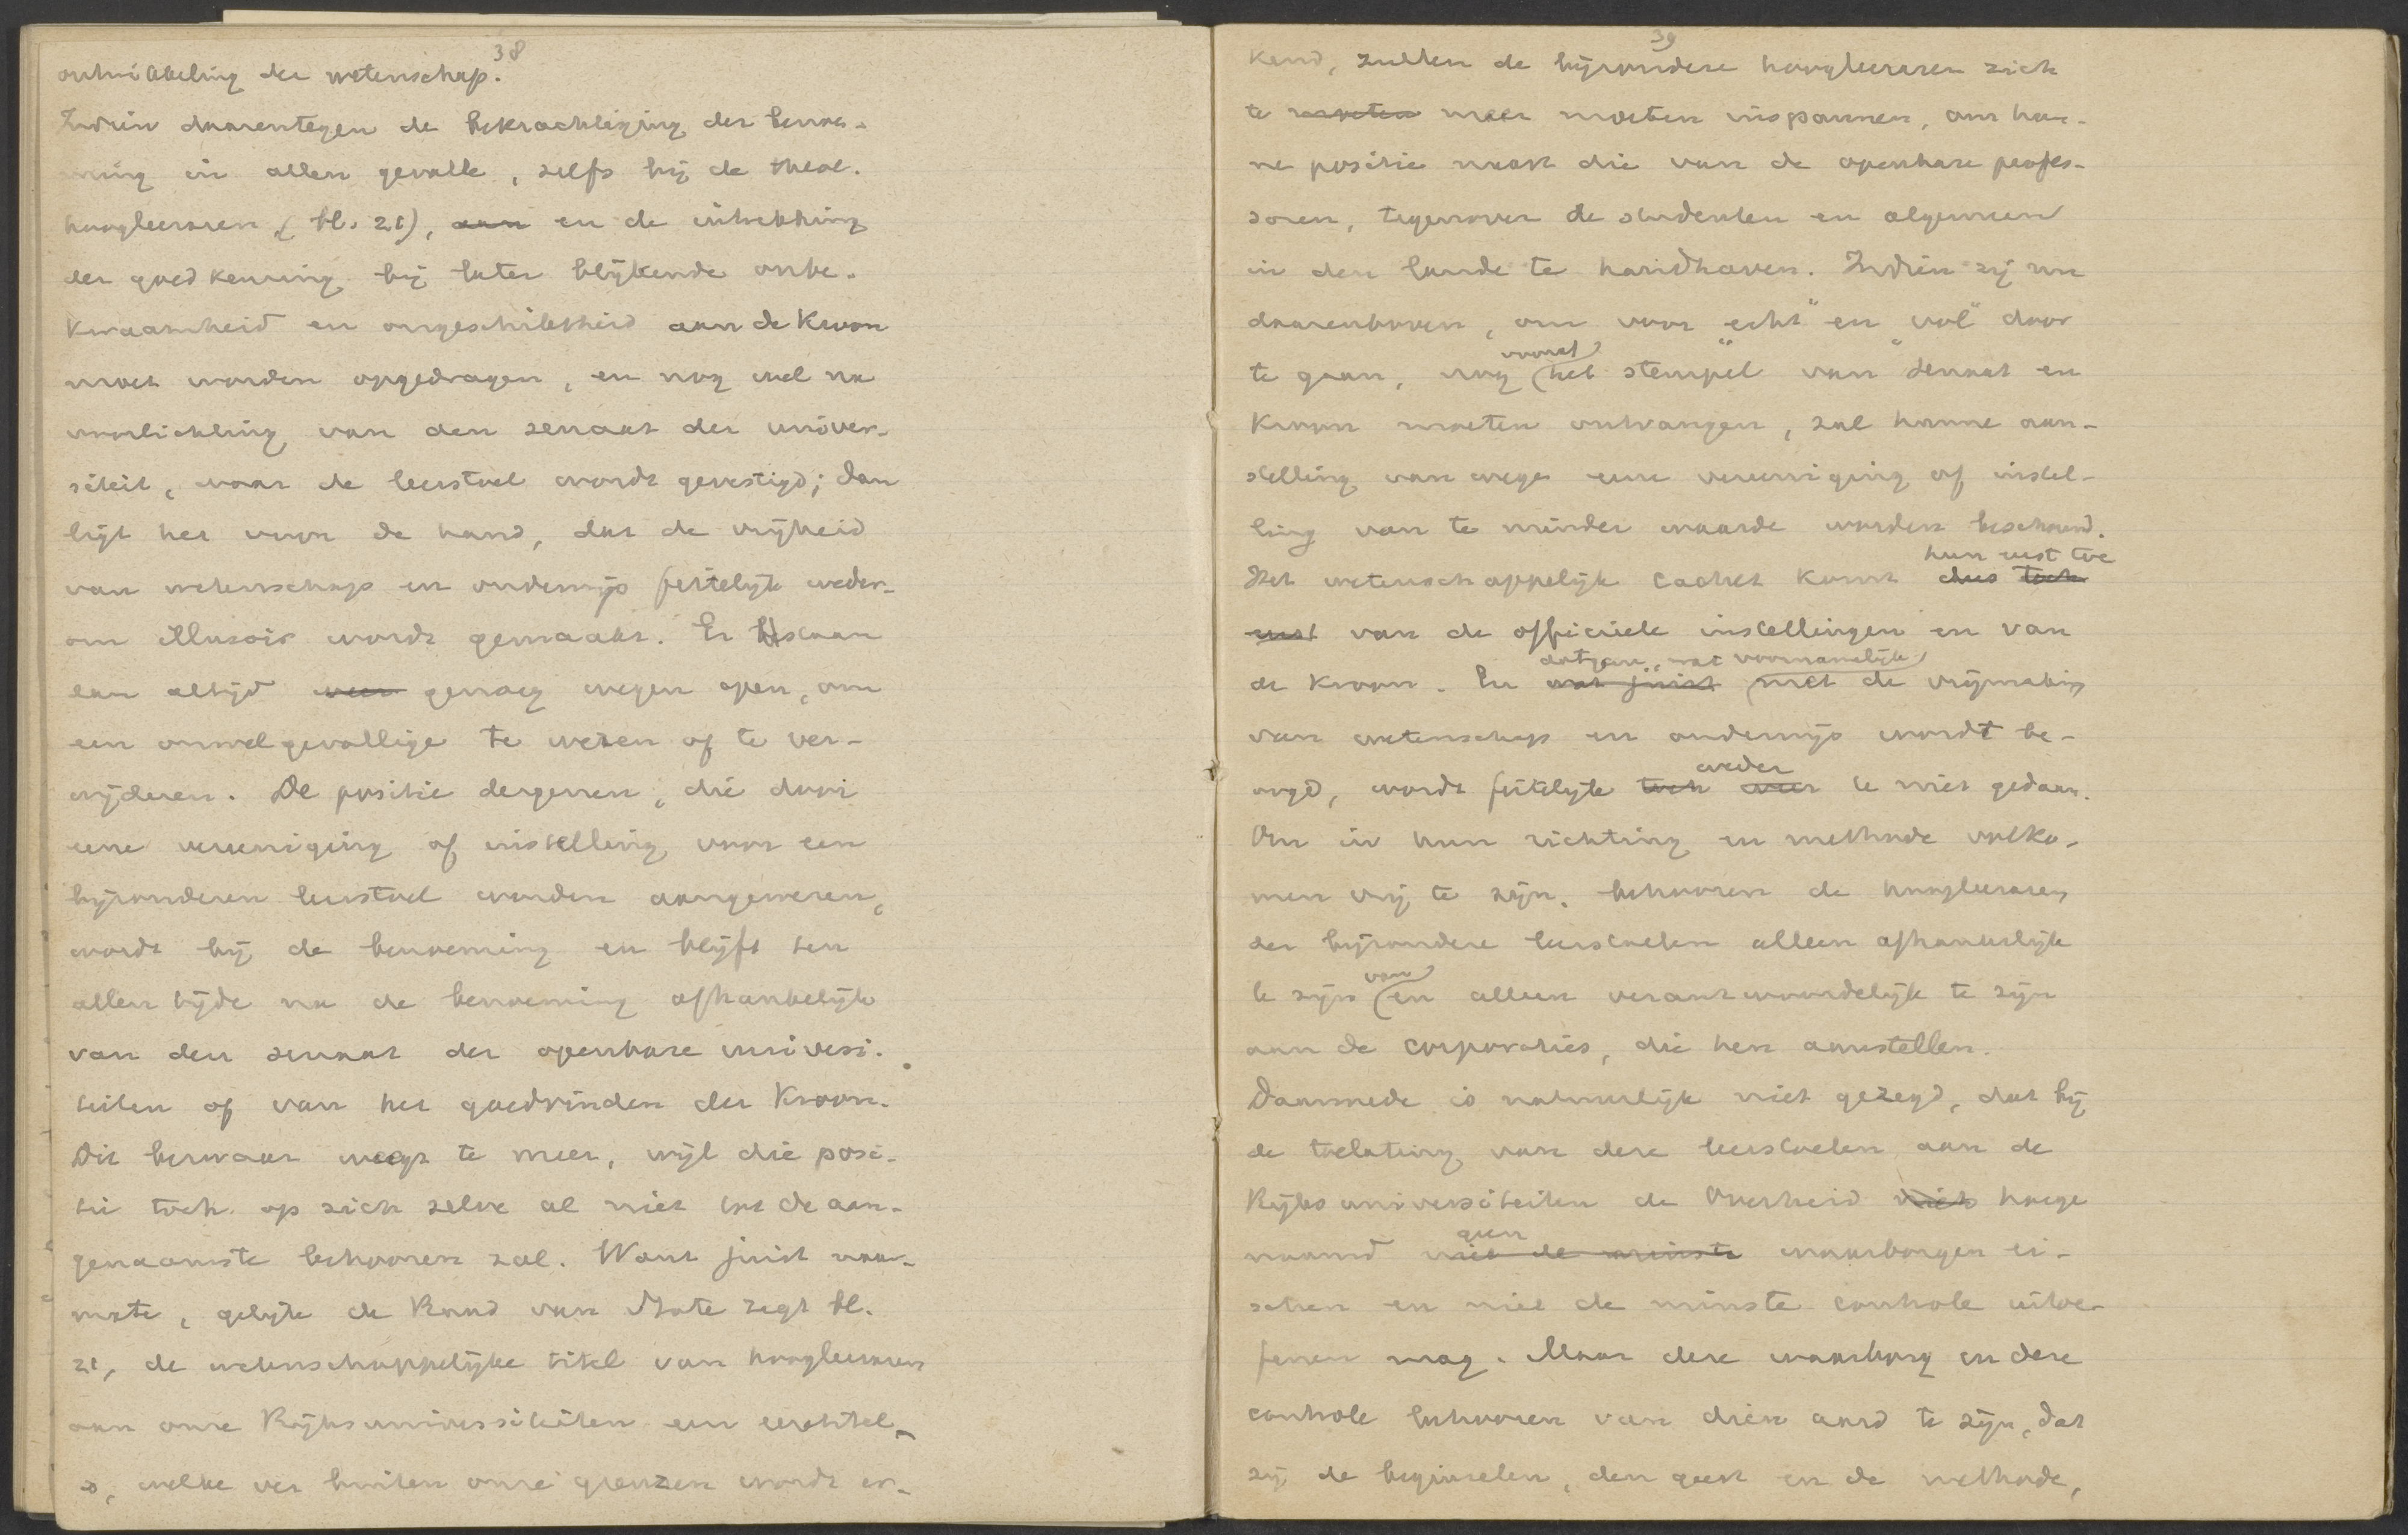 38
ontwikkeling der wetenschap.
Indien daarentegen de bekrachtiging der benoe-
ming in allen gevalle, zelfs bij de theol.
hoogleeraren (bl. 21), aan en de intrekking
der goedkeuring bij later blijkende onbe-
kwaamheid en ongeschiktheid aan de Kroon
moet worden opgedragen, en nog wel na
voorlichting van den senaat der univer-
siteit, waar de leerstoel wordt gevestigd; dan
ligt het voor de hand, dat de vrijheid
van wetenschap en onderwijs feitelijk weder-
om illusoir wordt gemaakt. Er staan
dan altijd weer genoeg wegen open, om
een onwelgevallige te weren of te ver-
wijderen. De positie dergenen, die door
eene vereeniging of instelling voor een
bijzonderen leerstoel worden aangewezen,
wordt bij de benoeming en blijft ten
allen tijde na de benoeming afhankelijk
van den senaat der openbare universi-
teiten of van het goedvinden der Kroon.
Dit bezwaar weegt te meer, wijl die posi-
tie toch op zich zelve al niet tot de aan-
genaamste behooren zal. Want juist naar-
mate, gelijk de Raad van State zegt bl.
21, de wetenschappelijke titel van hoogleeraren
aan onze Rijksuniversiteiten een eeretitel
is, welke ver buiten onze grenzen wordt er-
39
kend, zullen de bijzondere hoogleeraren zich
te moeten meer moeten inspannen, om hun-
ne positie naast die van de openbare profes-
soren, tegenover de studenten en algemeen
in den lande te handhaven. Indien zij nu
daarenboven, om voor "echt" en "vol" door
te gaan, nog (vooraf) het stempel van senaat en
Kroon moeten ontvangen, zal hunne aan-
stelling van wege eene vereeniging of instel-
ling van te minder waarde worden beschouwd.
hun eerst toe
Het wetenschappelijk cachet komt dus toch
eerst van de officieele instellingen en van
datgene, wat voornamelijk
de Kroon. En wat juist met de vrijmaking
van wetenschap en onderwijs wordt be-
weder
oogd, wordt feitelijk toch weer te niet gedaan.
Om in hun richting en methode volko-
men vrij te zijn, behooren de hoogleeraren
der bijzondere leerstoelen alleen afhankelijk
te zijn (van) en alleen verantwoordelijk te zijn
aan de corporaties, die hen aanstellen.
Daarmede is natuurlijk niet gezegd, dat bij
de toelating van deze leerstoelen aan de
Rijksuniversiteiten de Overheid niet hoege
geen
naamd niet de minste waarborgen ei-
schen en niet de minste controle uitoe-
fenen mag. Maar deze waarborg en deze
controle behooren van dien aard te zijn, dat
zij de beginselen, den geest en de methode,